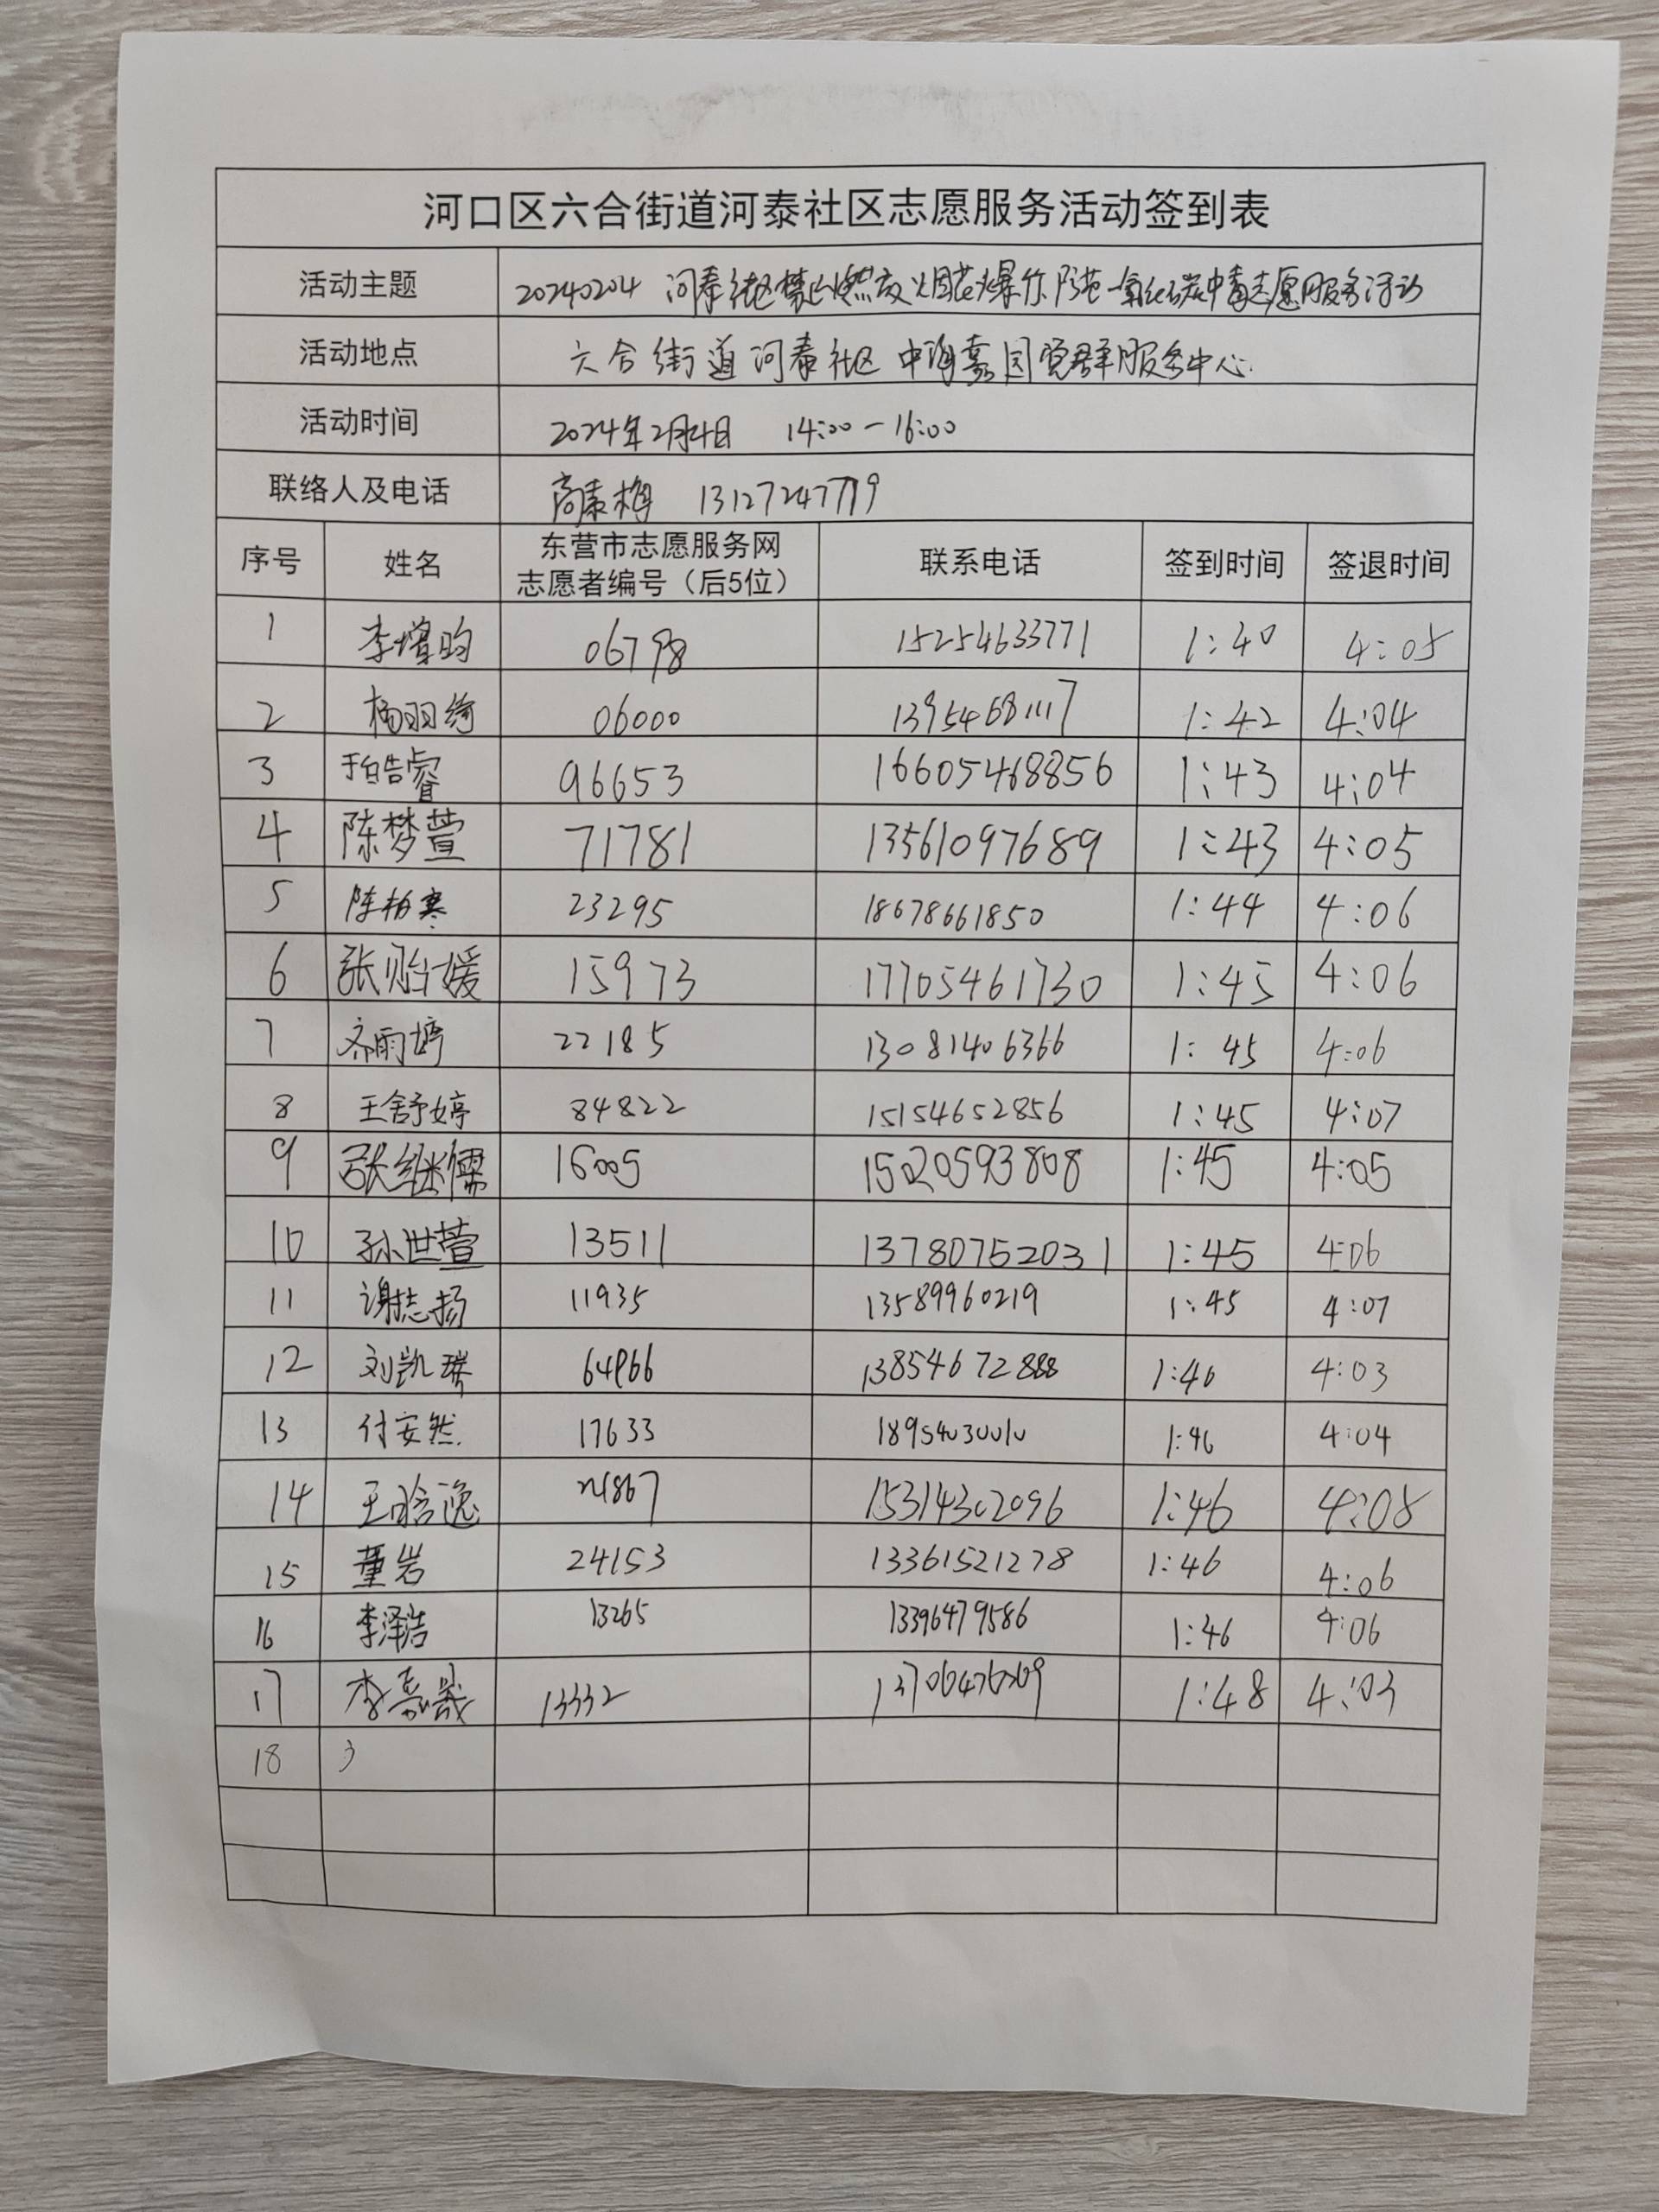 河口区六合街道河泰社区志愿服务活动签到表
活动主题 20240204 河泰社区禁止燃放烟花爆竹 防范一氧化碳中毒志愿服务活动
活动地点 六合街道河泰社区 中海嘉园党群服务中心
活动时间 2024年2月4日 14:00-16:00
联络人及电话 尚康梅 13127247719
序号 姓名 东营市志愿服务网 联系电话 签到时间 签退时间
志愿者编号（后5位）
1 06798 15254633771 1:40 4:05
2 杨羽绮 06000 13954681117 1:42 4:04
3 96653 16605468856 1:43 4:04
4 陈梦萱 71781 13561097689 1:43 4:05
5 陈柏寒 23295 18678661850 1:44 4:06
6 张贻媛 15973 17705461730 1:45 4:06
7 齐雨婷 22185 13081406366 1:45 4:06
8 王舒婷 84822 15154652856 1:45 4:07
9 张继儒 16005 15020593808 1:45 4:05
10 孙世萱 13511 13780752031 1:45 4:06
11 谢志扬 11935 13589960219 1:45 4:07
12 刘凯瑞 13854672888 1:46 4:03
13 付安然 17633 18954030010 1:46 4:04
14 王晗逸 21867 15314302096 1:46 4:08
15 董岩 24153 13361521278 1:46 4:06
16 李泽浩 13265 13396479586 1:46 4:06
17 13332 1:48 4:03
18